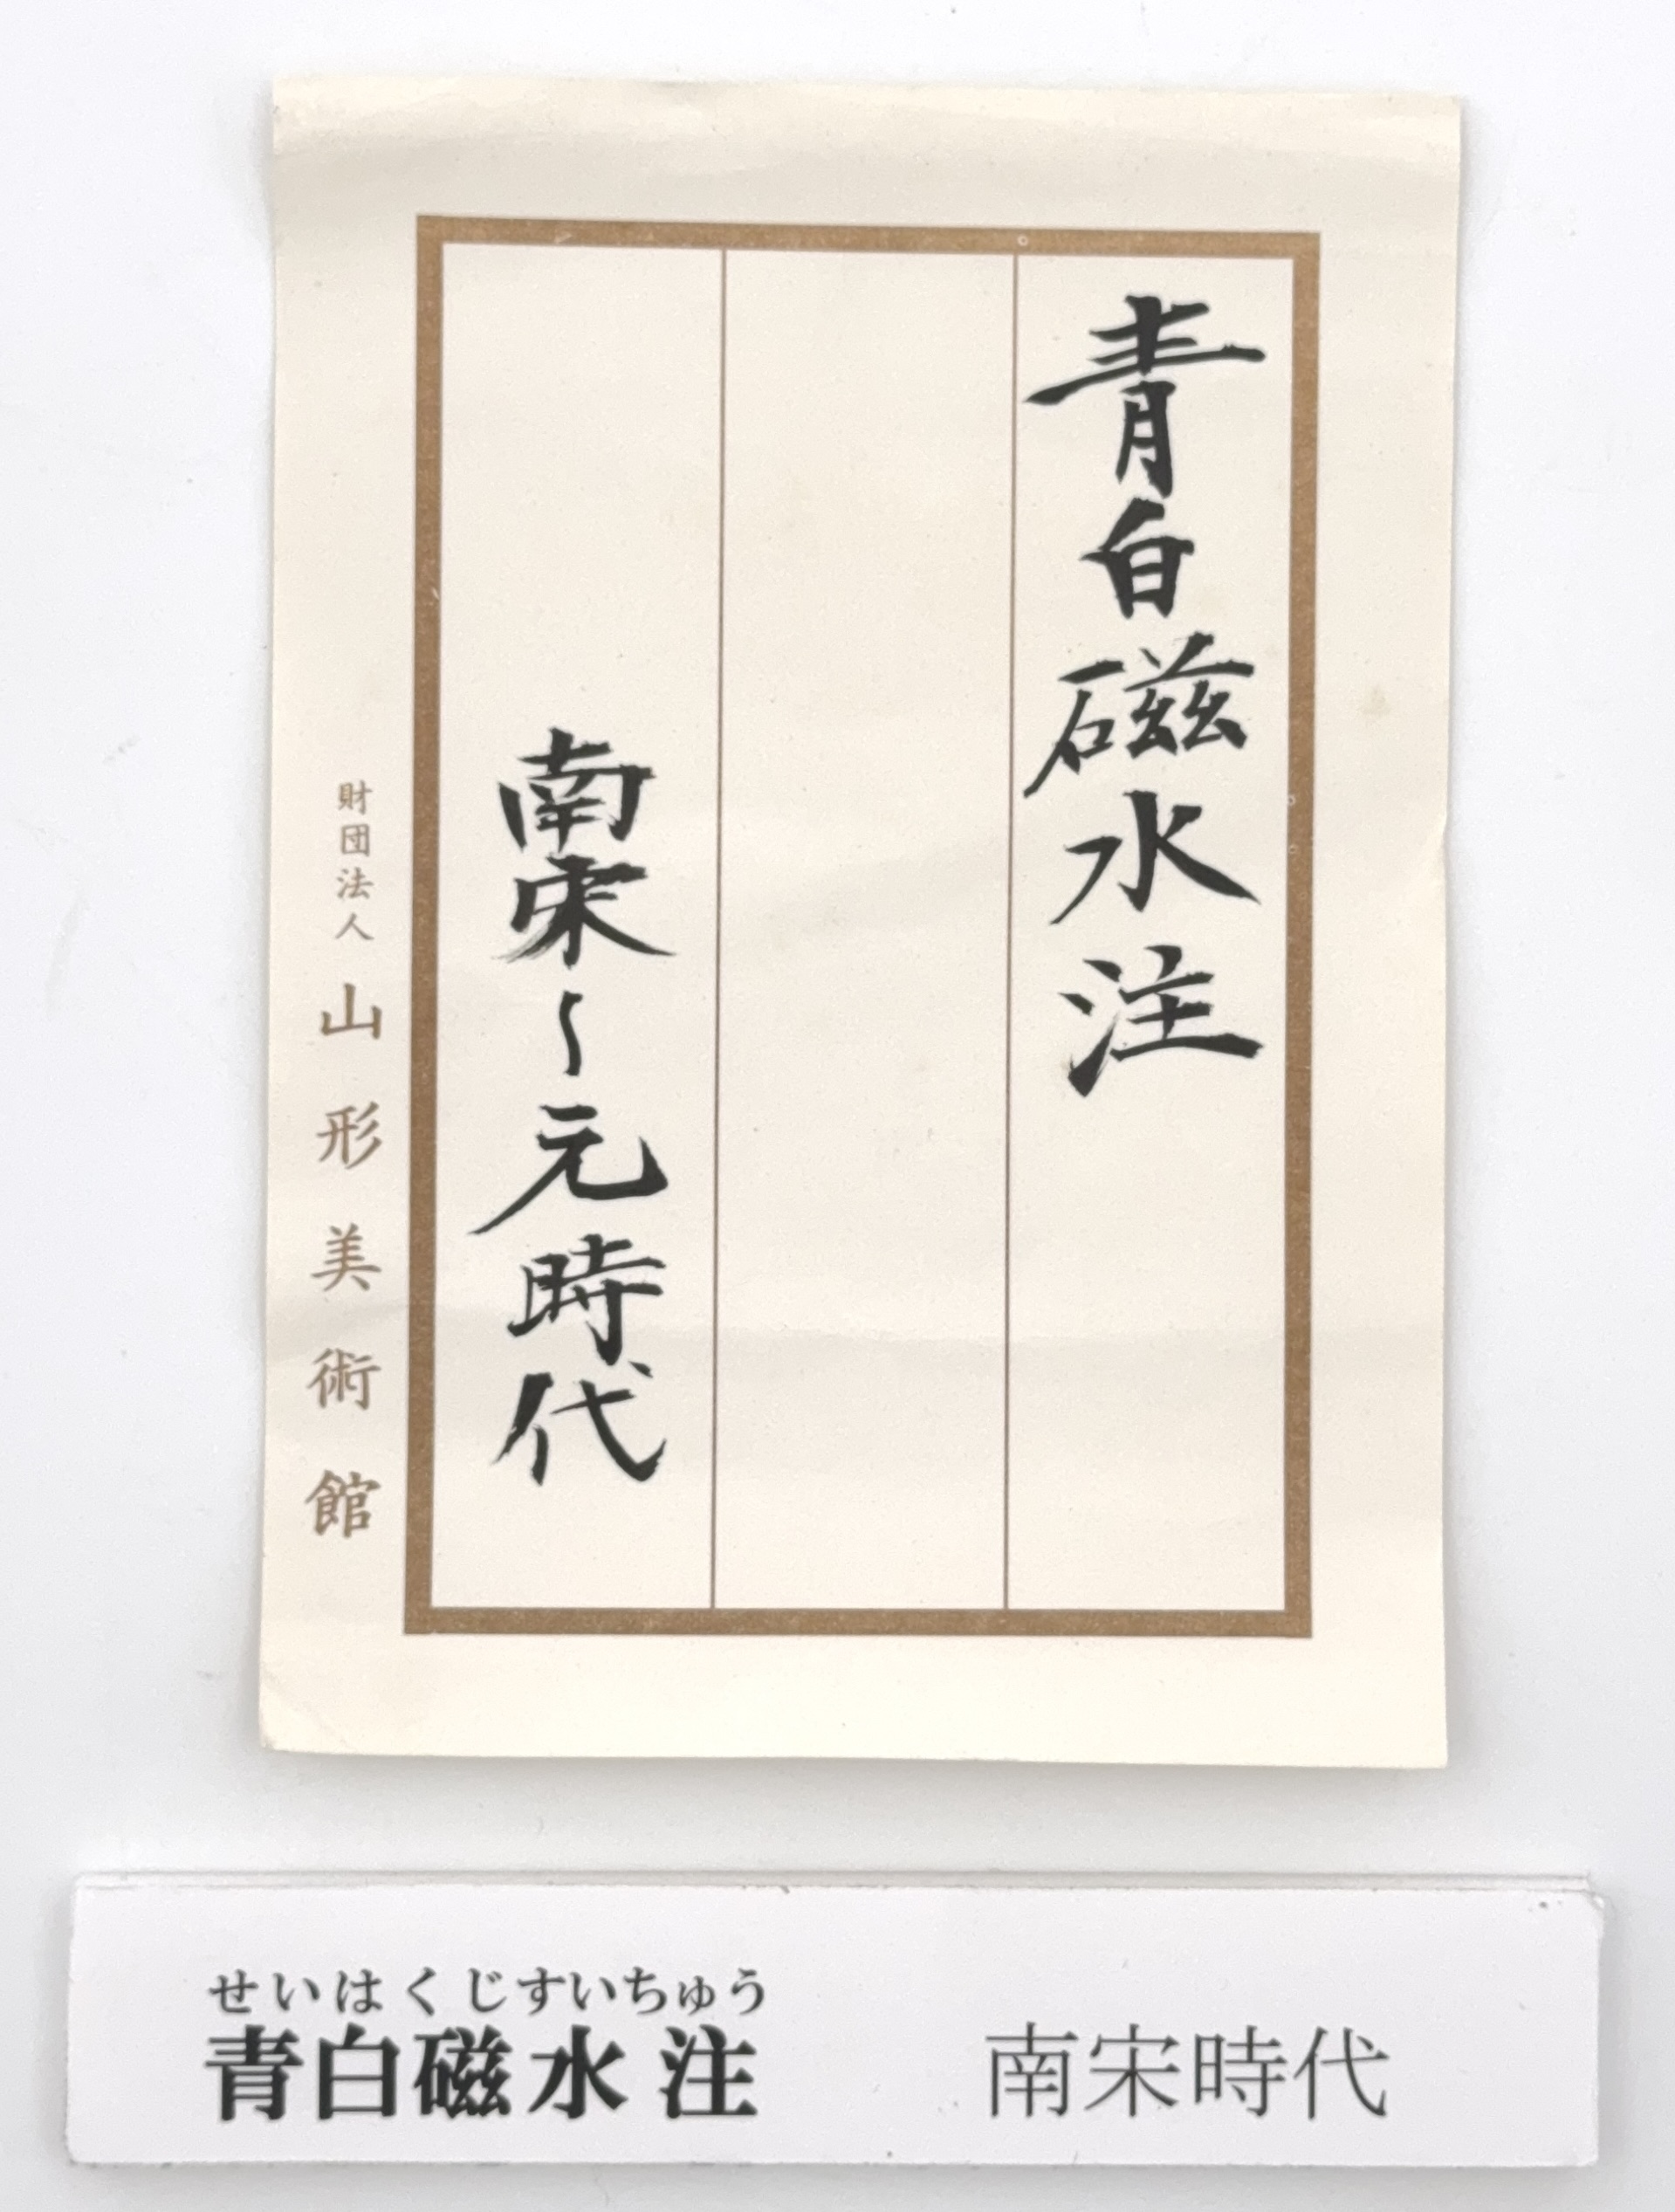 青白磁水注
南宋〜元時代
財団法人 山形美術館
せいはくじすいちゅう
青白磁水注 南宋時代